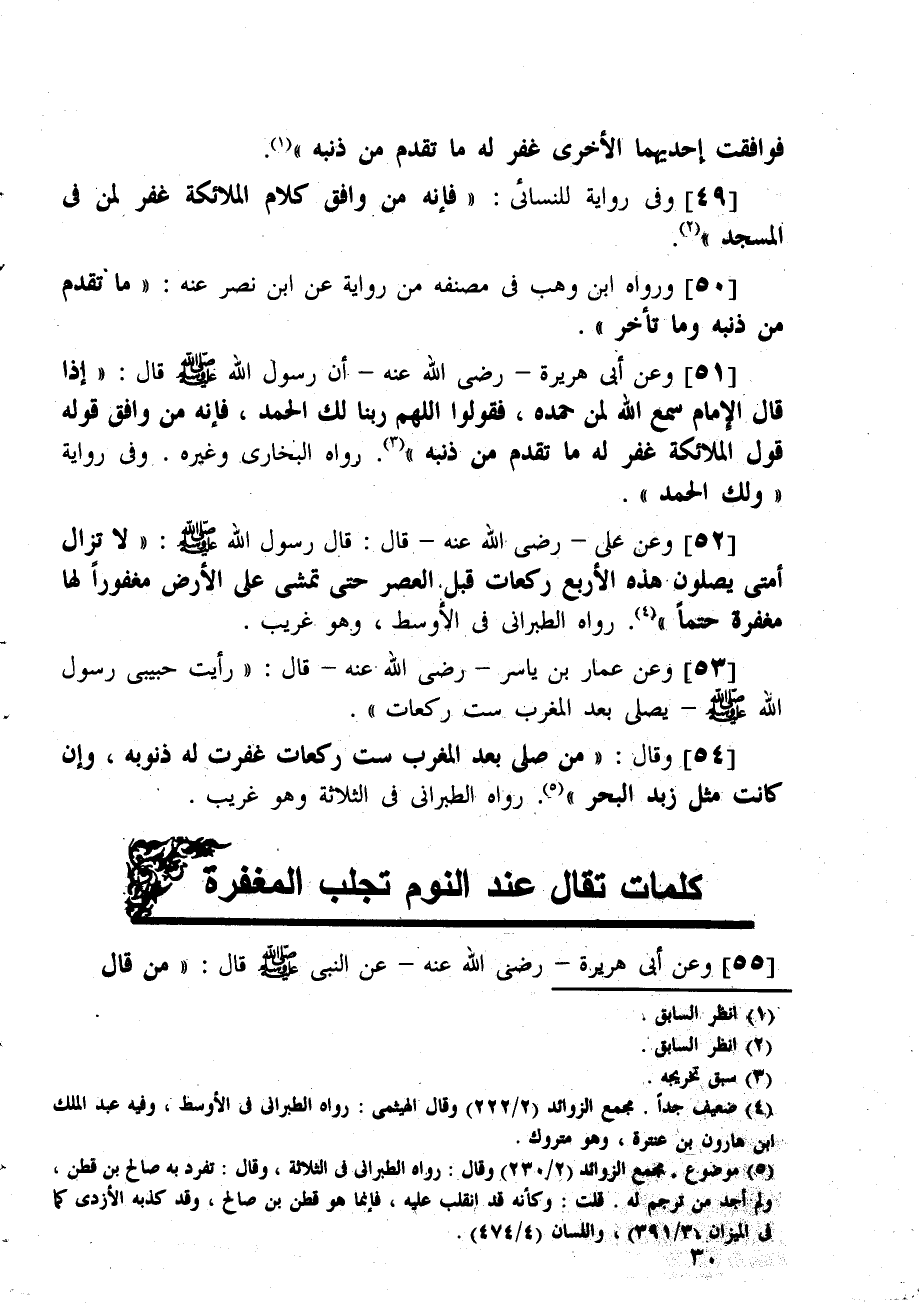 فوافقت إحديهما الأخرى غفر له ما تقدم من ذنبه »(١).
[٤٩] وفى رواية للنسائى : « فإنه من وافق كلام الملائكة غفر لمن فى
المسجد »(٢).
[٥٠] ورواه ابن وهب فى مصنفه من رواية عن ابن نصر عنه : « ما تقدم
من ذنبه وما تأخر » .
[٥١] وعن أبى هريرة – رضى الله عنه – أن رسول الله ﷺ قال : « إذا
قال الإمام سمع الله لمن حمده ، فقولوا اللهم ربنا لك الحمد ، فإنه من وافق قوله
قول الملائكة غفر له ما تقدم من ذنبه »(٣). رواه البخارى وغيره . وفى رواية
« ولك الحمد » .
[٥٢] وعن على – رضى الله عنه – قال : قال رسول الله ﷺ : « لا تزال
أمتى يصلون هذه الأربع ركعات قبل العصر حتى تمشى على الأرض مغفوراً لها
مغفرة حتماً »(٤). رواه الطبرانى فى الأوسط ، وهو غريب .
[٥٣] وعن عمار بن ياسر – رضى الله عنه – قال : « رأيت حبيبى رسول
الله ﷺ – يصلى بعد المغرب ست ركعات » .
[٥٤] وقال : « من صلى بعد المغرب ست ركعات غفرت له ذنوبه ، وإن
كانت مثل زبد البحر »(٥). رواه الطبرانى فى الثلاثة وهو غريب .
كلمات تقال عند النوم تجلب المغفرة
[٥٥] وعن أبى هريرة – رضى الله عنه – عن النبى ﷺ قال : « من قال
(١) انظر السابق .
(٢) انظر السابق .
(٣) سبق تخريجه .
(٤) ضعيف جداً . مجمع الزوائد (٢٢٢/٢) وقال الهيثمى : رواه الطبرانى فى الأوسط ، وفيه عبد الملك
ابن هارون بن عنترة ، وهو متروك .
(٥) موضوع . مجمع الزوائد (٢٣٠/٢) وقال : رواه الطبرانى فى الثلاثة ، وقال : تفرد به صالح بن قطن ،
ولم أجد من ترجم له . قلت : وكأنه قد انقلب عليه ، فإنما هو قطن بن صالح ، وقد كذبه الأزدى كما
فى الميزان (٣٩١/٣) ، واللسان (٤٧٤/٤) .
٣٠